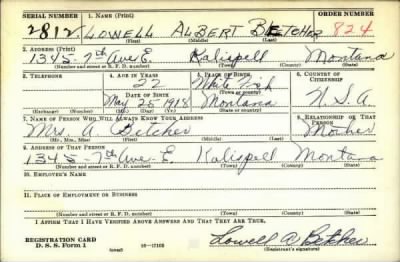 SERIAL NUMBER 1. NAME (Print) ORDER NUMBER
2812 LOWELL ALBERT BETCHER 824
(First) (Middle) (Last)
2. ADDRESS (Print)
1345-7th Ave E. Kalispell Montana
(Number and street or R. F. D. number) (Town) (County) (State)
3. TELEPHONE 4. AGE IN YEARS 5. PLACE OF BIRTH 6. COUNTRY OF CITIZENSHIP
22 White Fish
DATE OF BIRTH (Town or county)
May 25 1918 Montana U.S.A
(Exchange) (Number) (Mo.) (Day) (Yr.) (State or country)
7. NAME OF PERSON WHO WILL ALWAYS KNOW YOUR ADDRESS 8. RELATIONSHIP OF THAT PERSON
Mrs. A. Betcher Mother
(Mr., Mrs., Miss) (First) (Middle) (Last)
9. ADDRESS OF THAT PERSON
1345-7th Ave-E. Kalispell Montana
(Number and street or R. F. D. number) (Town) (County) (State)
10. EMPLOYER'S NAME
11. PLACE OF EMPLOYMENT OR BUSINESS
(Number and street or R. F. D. number) (Town) (County) (State)
I AFFIRM THAT I HAVE VERIFIED ABOVE ANSWERS AND THAT THEY ARE TRUE.
REGISTRATION CARD Lowell A Betcher
D. S. S. Form 1 (over) 16-17105 (Registrant's signature)